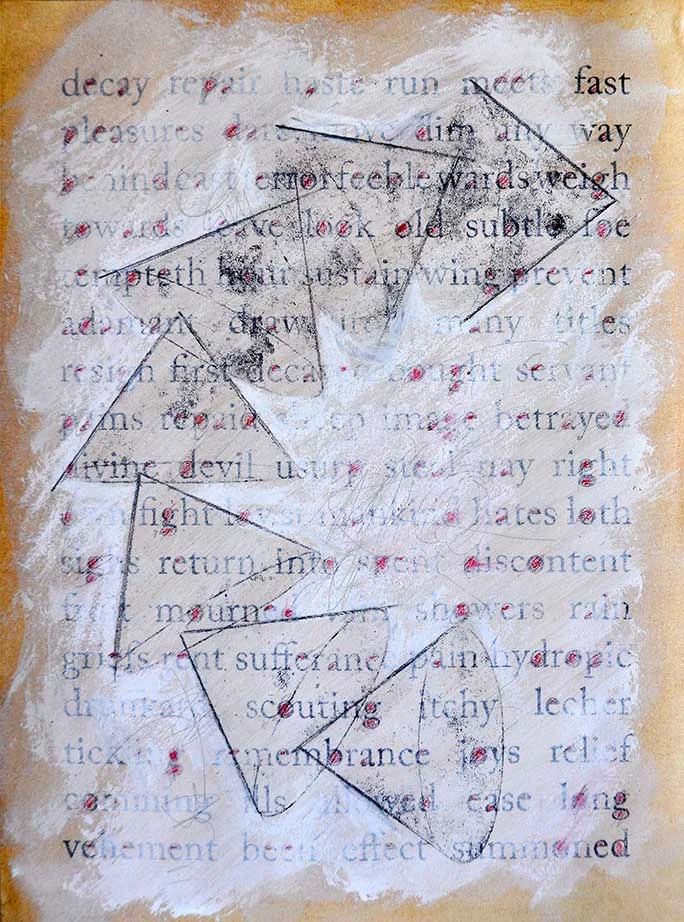 decay repair haste run meets fast
pleasures dare move dim any way
behind cast terror feeble wards weigh
towards leave look old subtle foe
tempteth hour sustain wing prevent
adamant draw many titles
resign first decay bought servant
pains repaid image betrayed
divine devil usurp steal nay right
own fight lovst mankind hates loth
sighs return into spent discontent
fruit mourned vain showers rain
griefs rent sufferance pain hydropic
drunkard scouting itchy lecher
tickling remembrance joys relief
comming ills allowed ease long
vehement been effect summoned